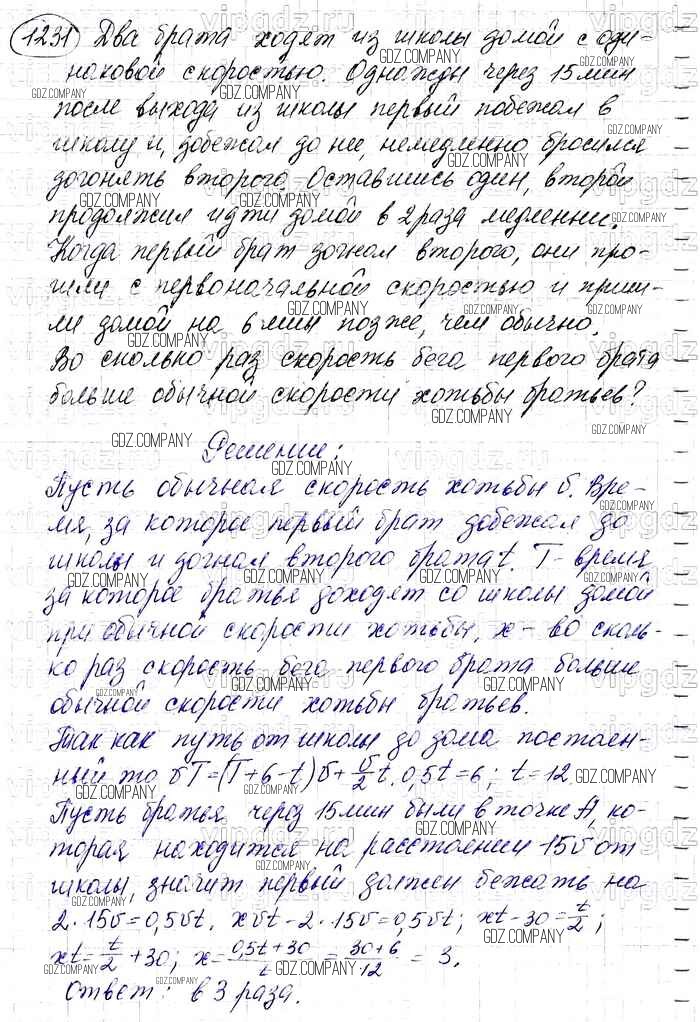 1231 Два брата ходят из школы домой с оди-
наковой скоростью. Однажды через 15 мин
после выхода из школы первый побежал в
школу и, добежал до нее, немедленно бросился
догонять второго. Оставшись один, второй
продолжил идти домой в 2 раза медленни.
Когда первый брат догнал второго, они про-
шли с первоначальной скоростью и приш-
ли домой на 6 мин позже, чем обычно.
Во сколько раз скорость бега первого брата
больше обычной скорости хотьбы братьев?
Решение:
Пусть обычная скорость хотьбы б. Вре-
мя, за которое первый брат добежал до
школы и догнал второго брата t. T - время
за которое братья доходят со школы домой
при обычной скорости хотьбы, x - во сколь-
ко раз скорость бега первого брата больше
обычной скорости хотьбы братьев.
Так как путь от школы до дома постоен-
ный то бT=(T+6-t)б+б/2 t. 0,5t=6; t=12.
Пусть братья, через 15 мин были в точке А, ко-
торая находится на расстоении 15б от
школы, значит первый должен бежать на
2·15б=0,5бt. xбt-2·15б=0,5бt; xt-30=t/2;
xt=t/2+30; x=(0,5t+30)/t=(30+6)/12=3.
Ответ: в 3 раза.
GDZ.COMPANY
vipgdz.ru